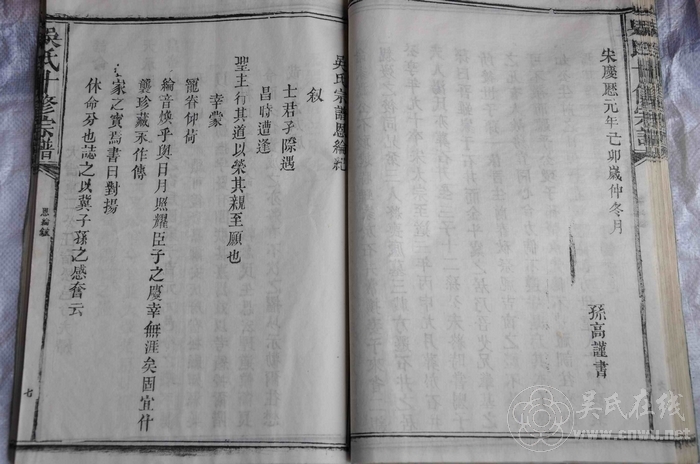 宋慶厯元年己卯歲仲冬月
孫高謹書
吳氏宗譜恩綸紀
叙
士君子際遇
昌時遭逢
聖主行其道以榮其親至願也
幸蒙
寵眷仰荷
綸音煥乎與日月照耀臣子之慶幸無涯矣固宜什
襲珍藏永作傳
家之寶焉書曰對揚
休命矜也誌之以冀子孫之感奮云
吳氏十修宗譜
七
吴氏在线
www.cnwu.net